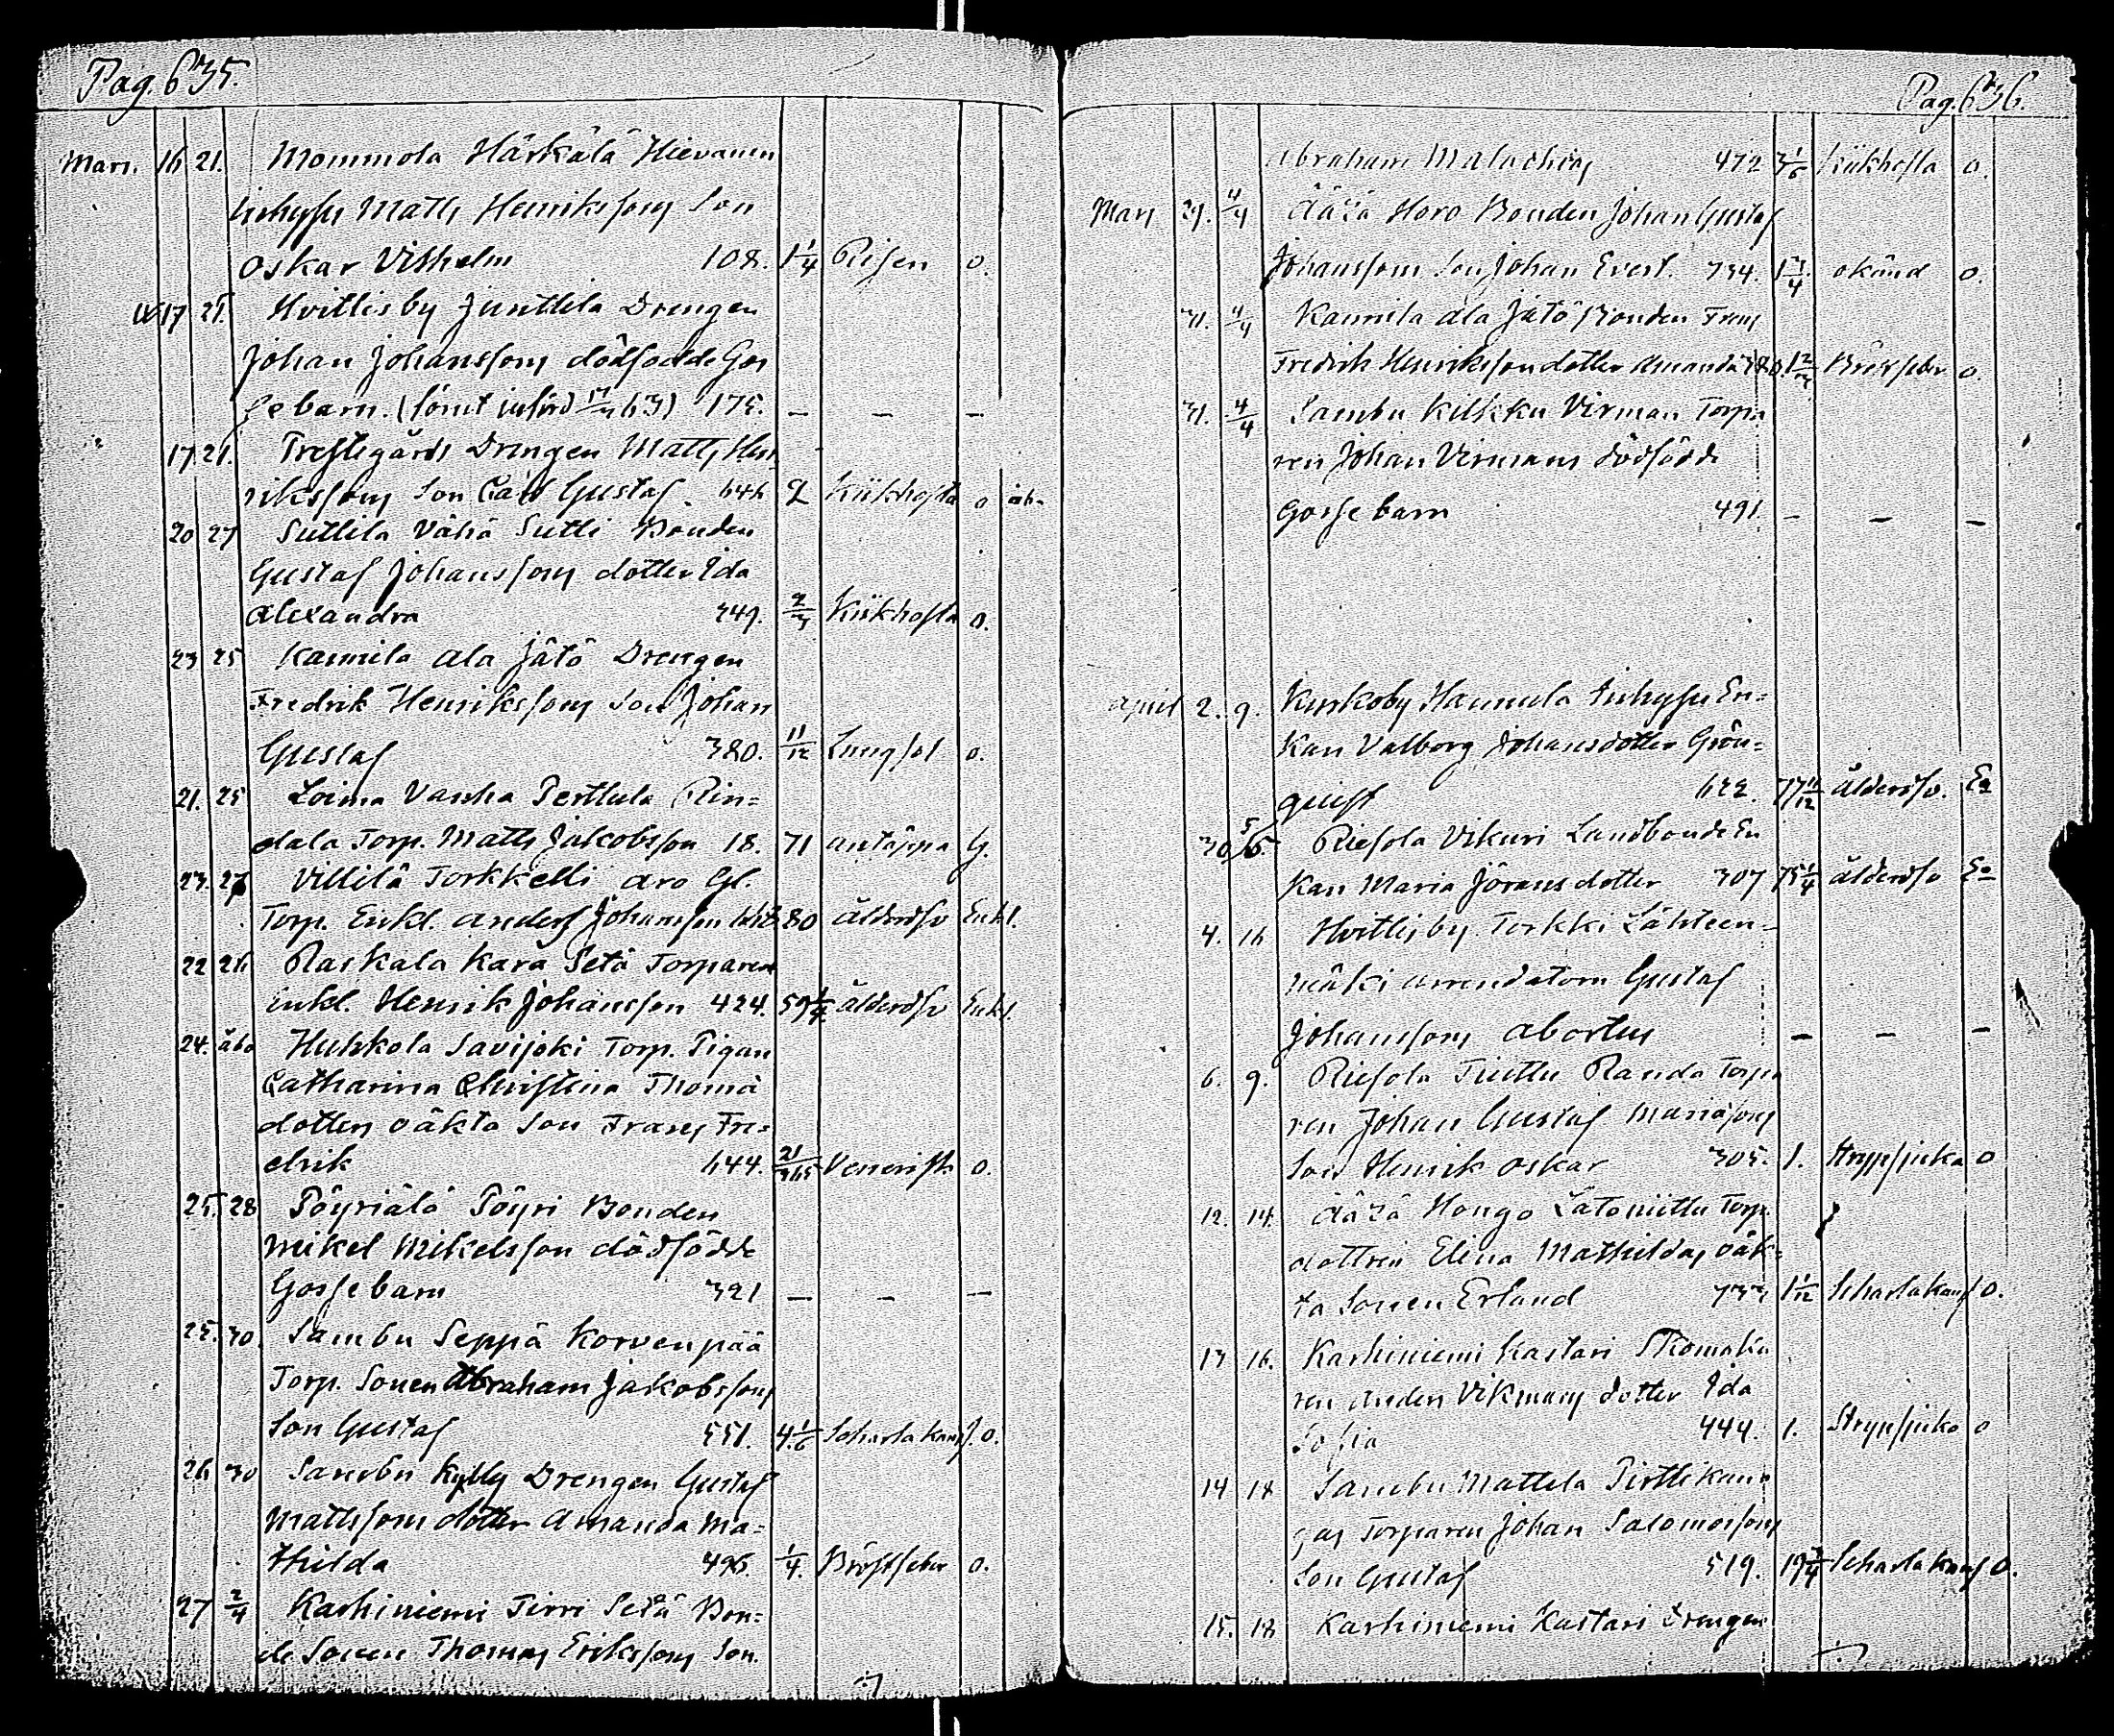 Pag. 635.
Mars. 16 21. Mommola Härkälä Hievanen
Inhyses Matts Henrikssons Son
Oskar Vilhelm 108. 1 1/4 Risen o.
17 21. Hvittisby Junttila Drengen
Johan Johanssons dödfödde Gos
se barn. 175. — — —
17 21. Prestegårds Drengen Matts Hen
rikssons Son Carl Gustaf 646 2 Kikhosta o
20 27 Suttila Vähä Sutti Bonden
Gustaf Johanssons dotter Ida
Alexandra 349. 2/3 Kikhosta o.
23 25 Kaunila Ala Jätö Drengen
Fredrik Henrikssons Son Johan
Gustaf 380. 11/12 Lungsot o.
21. 25 Loima Vanha Perttula Rin=
dala Torp. Matts Jakobsson 18. 71 antäppa G.
23. 27 Villilä Torkkelli Aro Gl.
Torp. Enkl. Anders Johansson 80 ålderdsv Enkl.
22 26 Raskala Kara Setä Torparen
Enkl. Henrik Johansson 424. 59 1/4 ålderdsv Enkl.
24. åbo Huhkola Savijoki Torp. Pigan
Catharina Christina Thomä
dotters oäkta Son Frans Fre=
drik 644. 21/365 Venerisk o.
25. 28 Pöyriälä Pöyri Bonden
Mikel Mikelsson dödfödde
Gosse barn 321 — — —
25. 30. Sambu Seppä Korvenpää
Torp. Sonen Abraham Jakobssons
Son Gustaf 551. 4 1/6 Scharlakansf. o.
26 30 Sambu Kylly Drengen Gustaf
Mattssons dotter Amanda Ma=
thilda 496. 1/4. Bröstfeber o.
27 2/4 Karhiniemi Tirri Setä Bon=
de Sonen Thomas Erikssons Son.
Pag. 636.
Abraham Malachias 472 3 1/6 Kikhosta o.
Mars 29. 4/4 Äätä Horo Bonden Johan Gustaf
Johanssons Son Johan Evert. 734. 1 3/4 okänd o.
31. 4/4 Kaunila Ala Jätö Bonden Frans
Fredrik Henrikssons dotter Amanda 380. 1 2/3 Bröstfeber o.
31. 4/4 Sambu Kilkku Virman Torpa
ren Johan Virmans dödfödde
Gosse barn 491 — — —
April 2. 9. Kurkoby Hannula Inhyses En=
kan Valborg Johansdotter Grön=
quist 622. 77 11/12 ålderdsv. Ea
30 5/5. Riesola Vikuri Landbonde En
kan Maria Göransdotter 307 75 1/4 ålderdsv Ea
4. 16 Hvittisby Torkki Lähteen=
mäki arrendatorn Gustaf
Johanssons abortus — — —
6. 9. Riesola Tuittu Randa Torpa
ren Johan Gustaf Mariassons
Son Henrik Oskar 305. 1. Strypsjuka o
12. 14. Äätä Hongo Latoniittu Torp.
dottren Elina Mathildas oäk=
ta Sonen Erland 733 1 1/12 Scharlakansf o.
13 16. Karhiniemi Kastari Skomaka
ren Anders Vikmans dotter Ida
Sofia 444. 1. Strypsjuka o
14 18 Sambu Mattila Pirttikan
gas Torparen Johan Salomossons
Son Gustaf 519. 19 3/4 Scharlakansf o.
15. 18 Karhiniemi Kastari Drengen